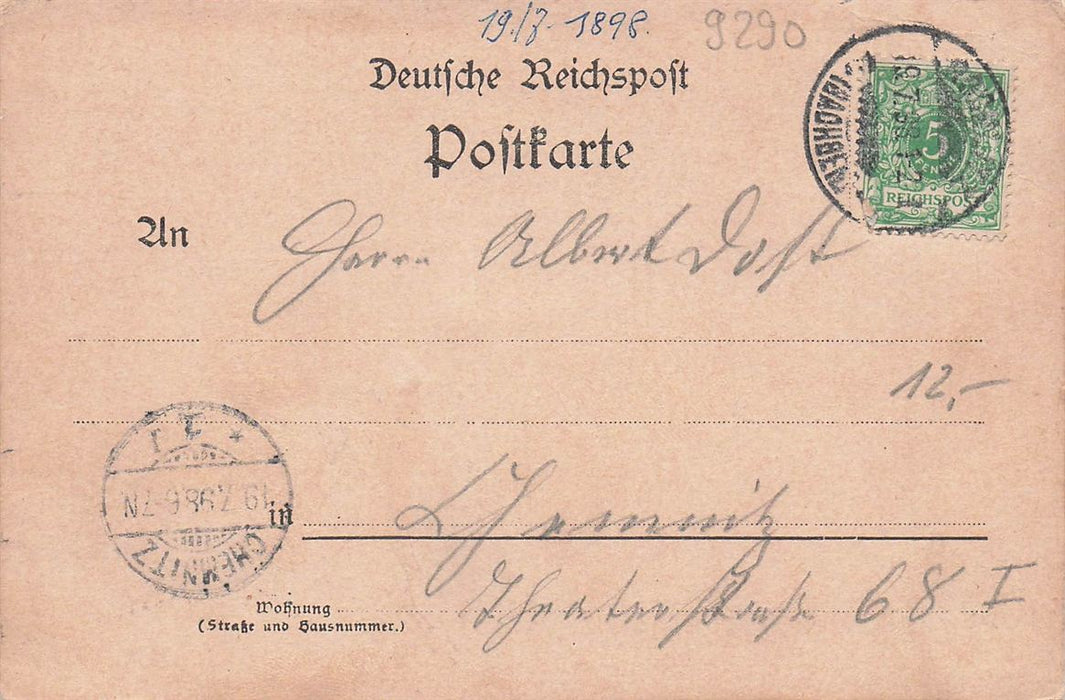 19/7. 1898.
9290
Deutsche Reichspost
Postkarte
5
REICHSPOST
An Herrn Albert Dost
12,-
19.7.98.6-7N
CHEMNITZ
in Chemnitz
Wohnung
(Straße und Hausnummer.)
Theaterstraße 68 I